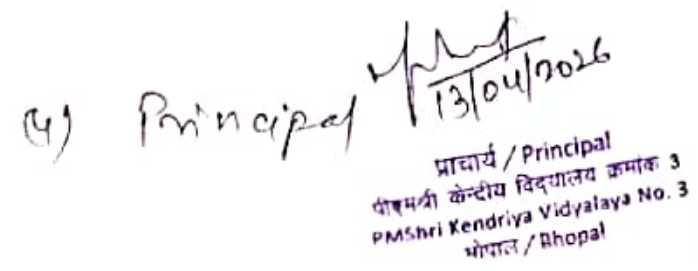 Principal
13/04/2026
प्राचार्य / Principal
पीएमश्री केन्द्रीय विद्यालय क्रमांक 3
PMShri Kendriya Vidyalaya No. 3
भोपाल / Bhopal